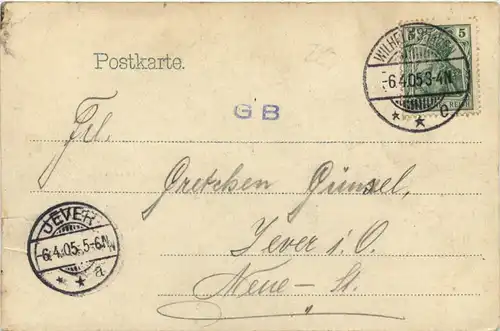 Postkarte.
WILHELMSHAVEN
-6.4.05.3-4N.
* * c
5
REI
G B
Frl.
Gretchen Günsel,
JEVER
6.4.05.5-6N
* * a
Jever i. O.
Neue - St.